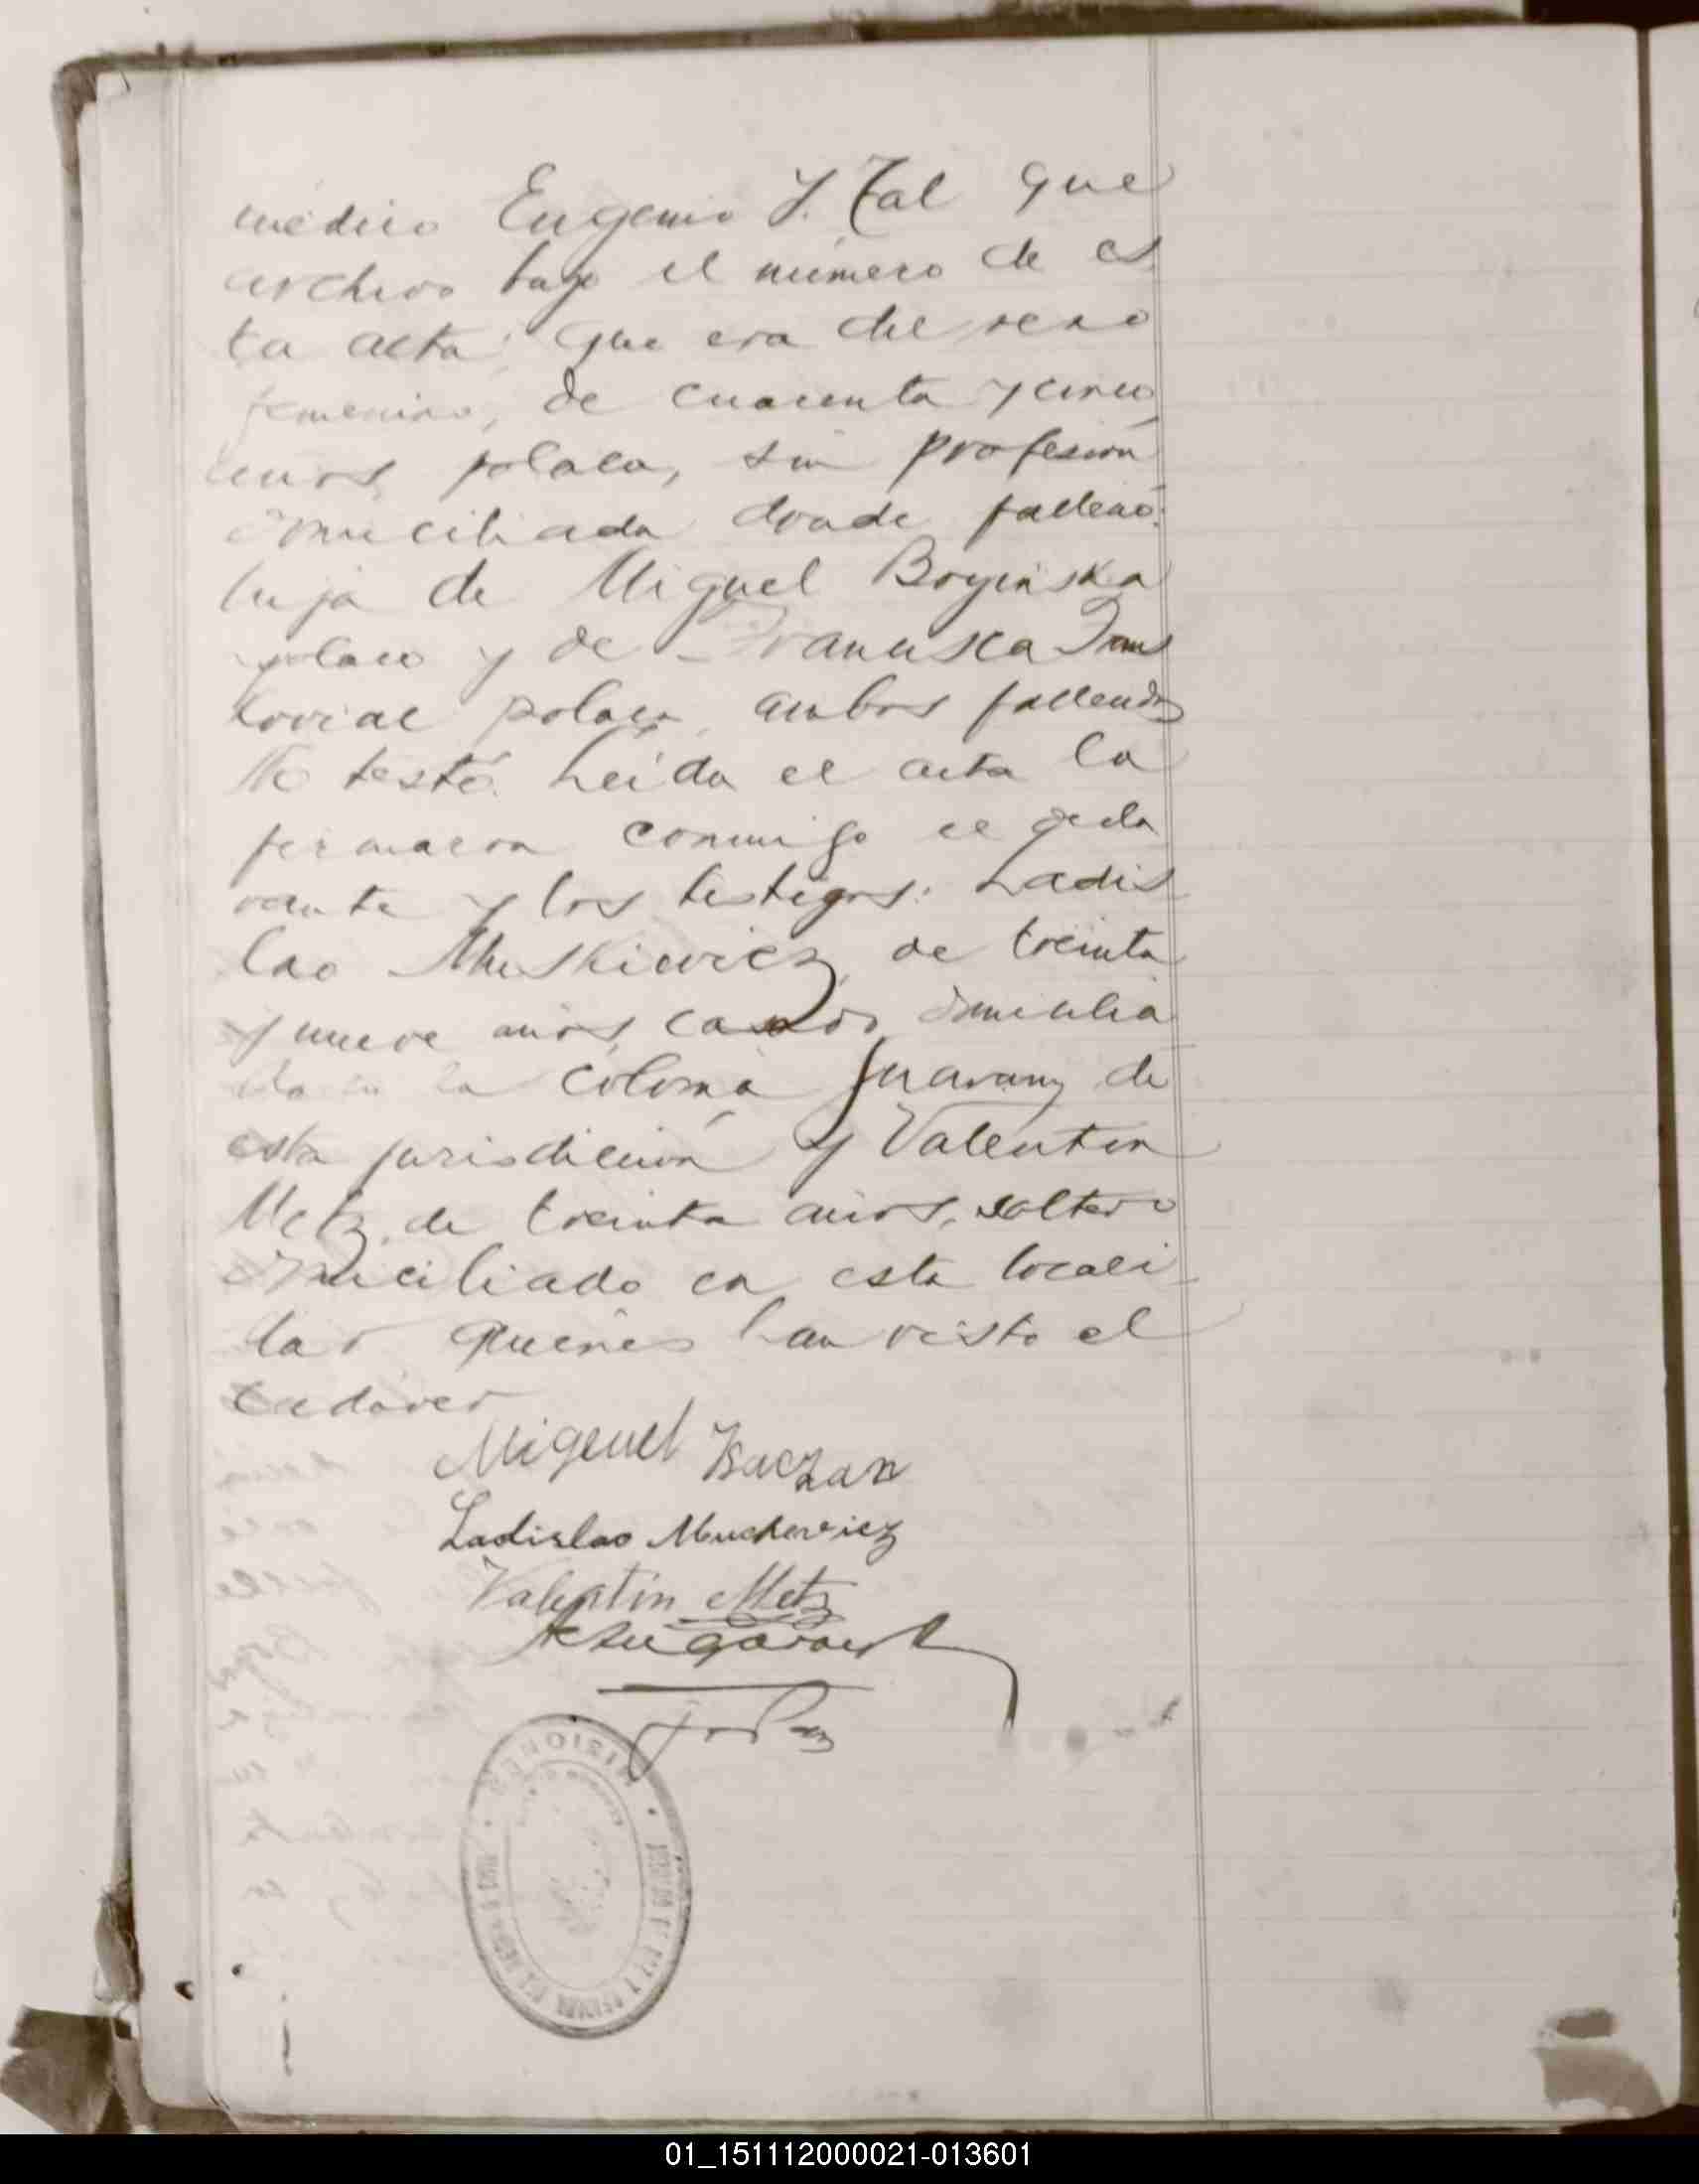 médico Eugenio J. Tal que
archivo bajo el número de es
ta acta; que era del sexo
femenino, de cuarenta y cinco
años, polaca, sin profesión
domiciliada donde falleció;
hija de Miguel Boyinska
polaco y de Francisca
polaca, ambos fallecidos
No testó. Leída el acta la
firmaron conmigo el decla
rante y los testigos: Ladis
lao Muskievicz, de treinta
y nueve años, casado, domicilia
do en la colonia Guarany de
esta jurisdicción y Valentin
Metz, de treinta años, soltero
domiciliado en esta locali
dad quienes han visto el
cadáver
Miguel Baczan
Ladislao Muchewicz
Valentin Metz
MISIONES
01_151112000021-013601